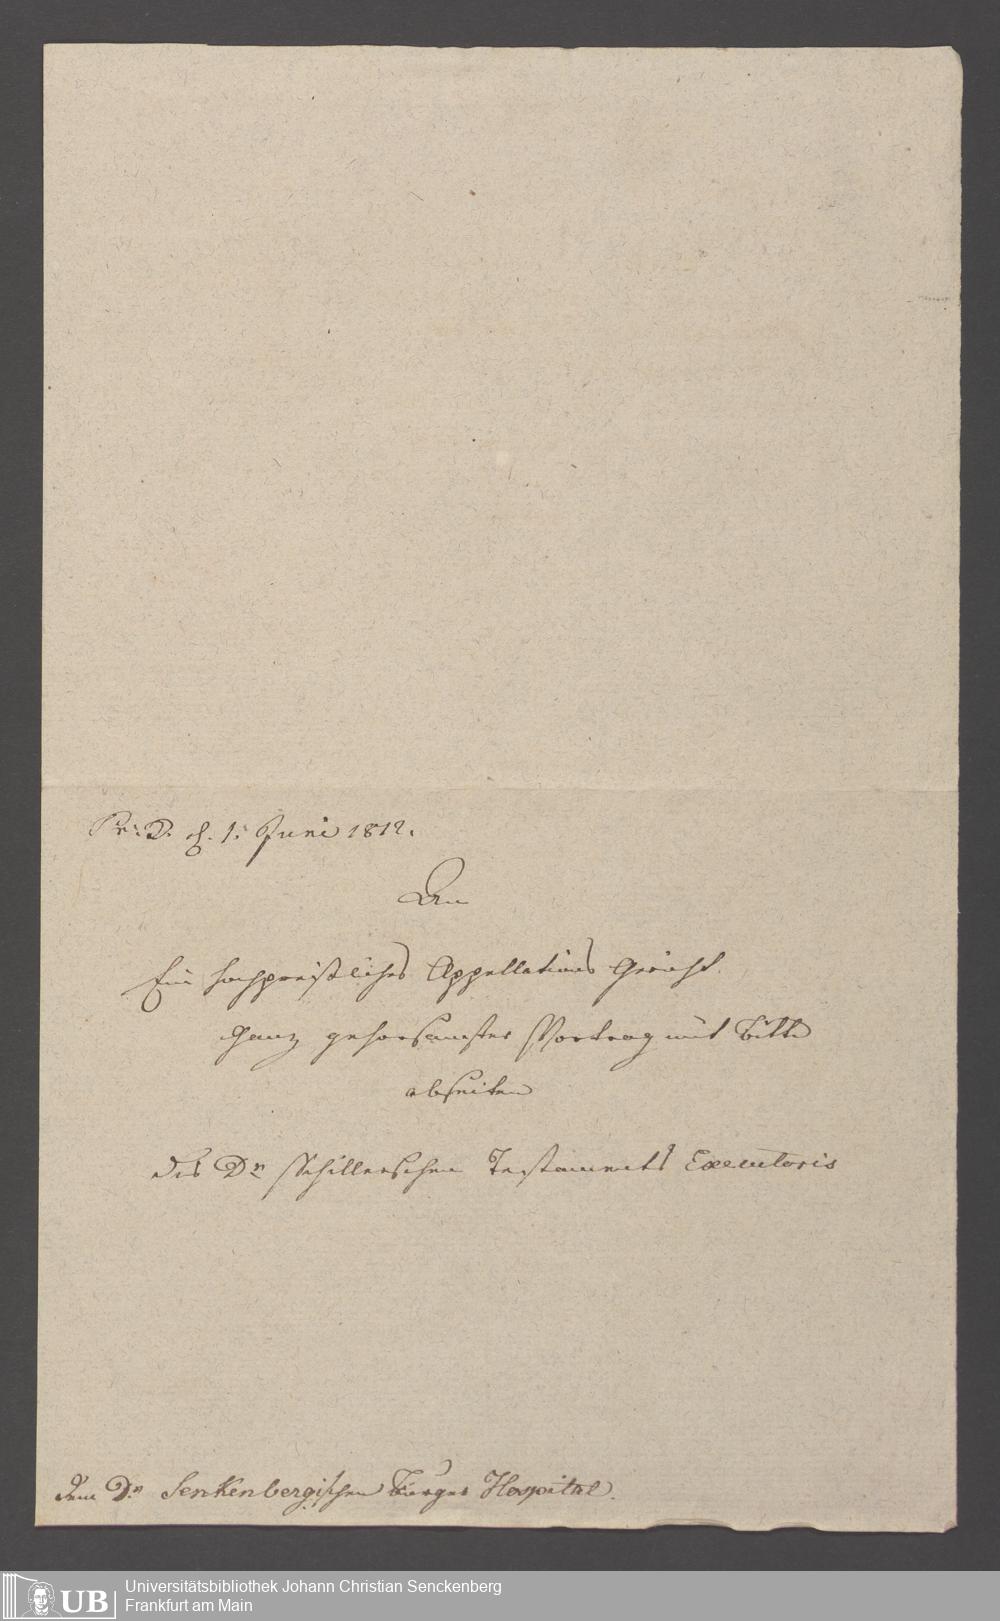 Pr: D. d. 1. Juni 1812.
An
Ein hochpreißliches Appellations Gericht
Ganz gehorsamster Vortrag mit Bitte
abseiten
des Dr Schillerschen Testaments Executoris
dem Dr Senkenbergischen Bürger Hospital.
UB
Universitätsbibliothek Johann Christian Senckenberg
Frankfurt am Main